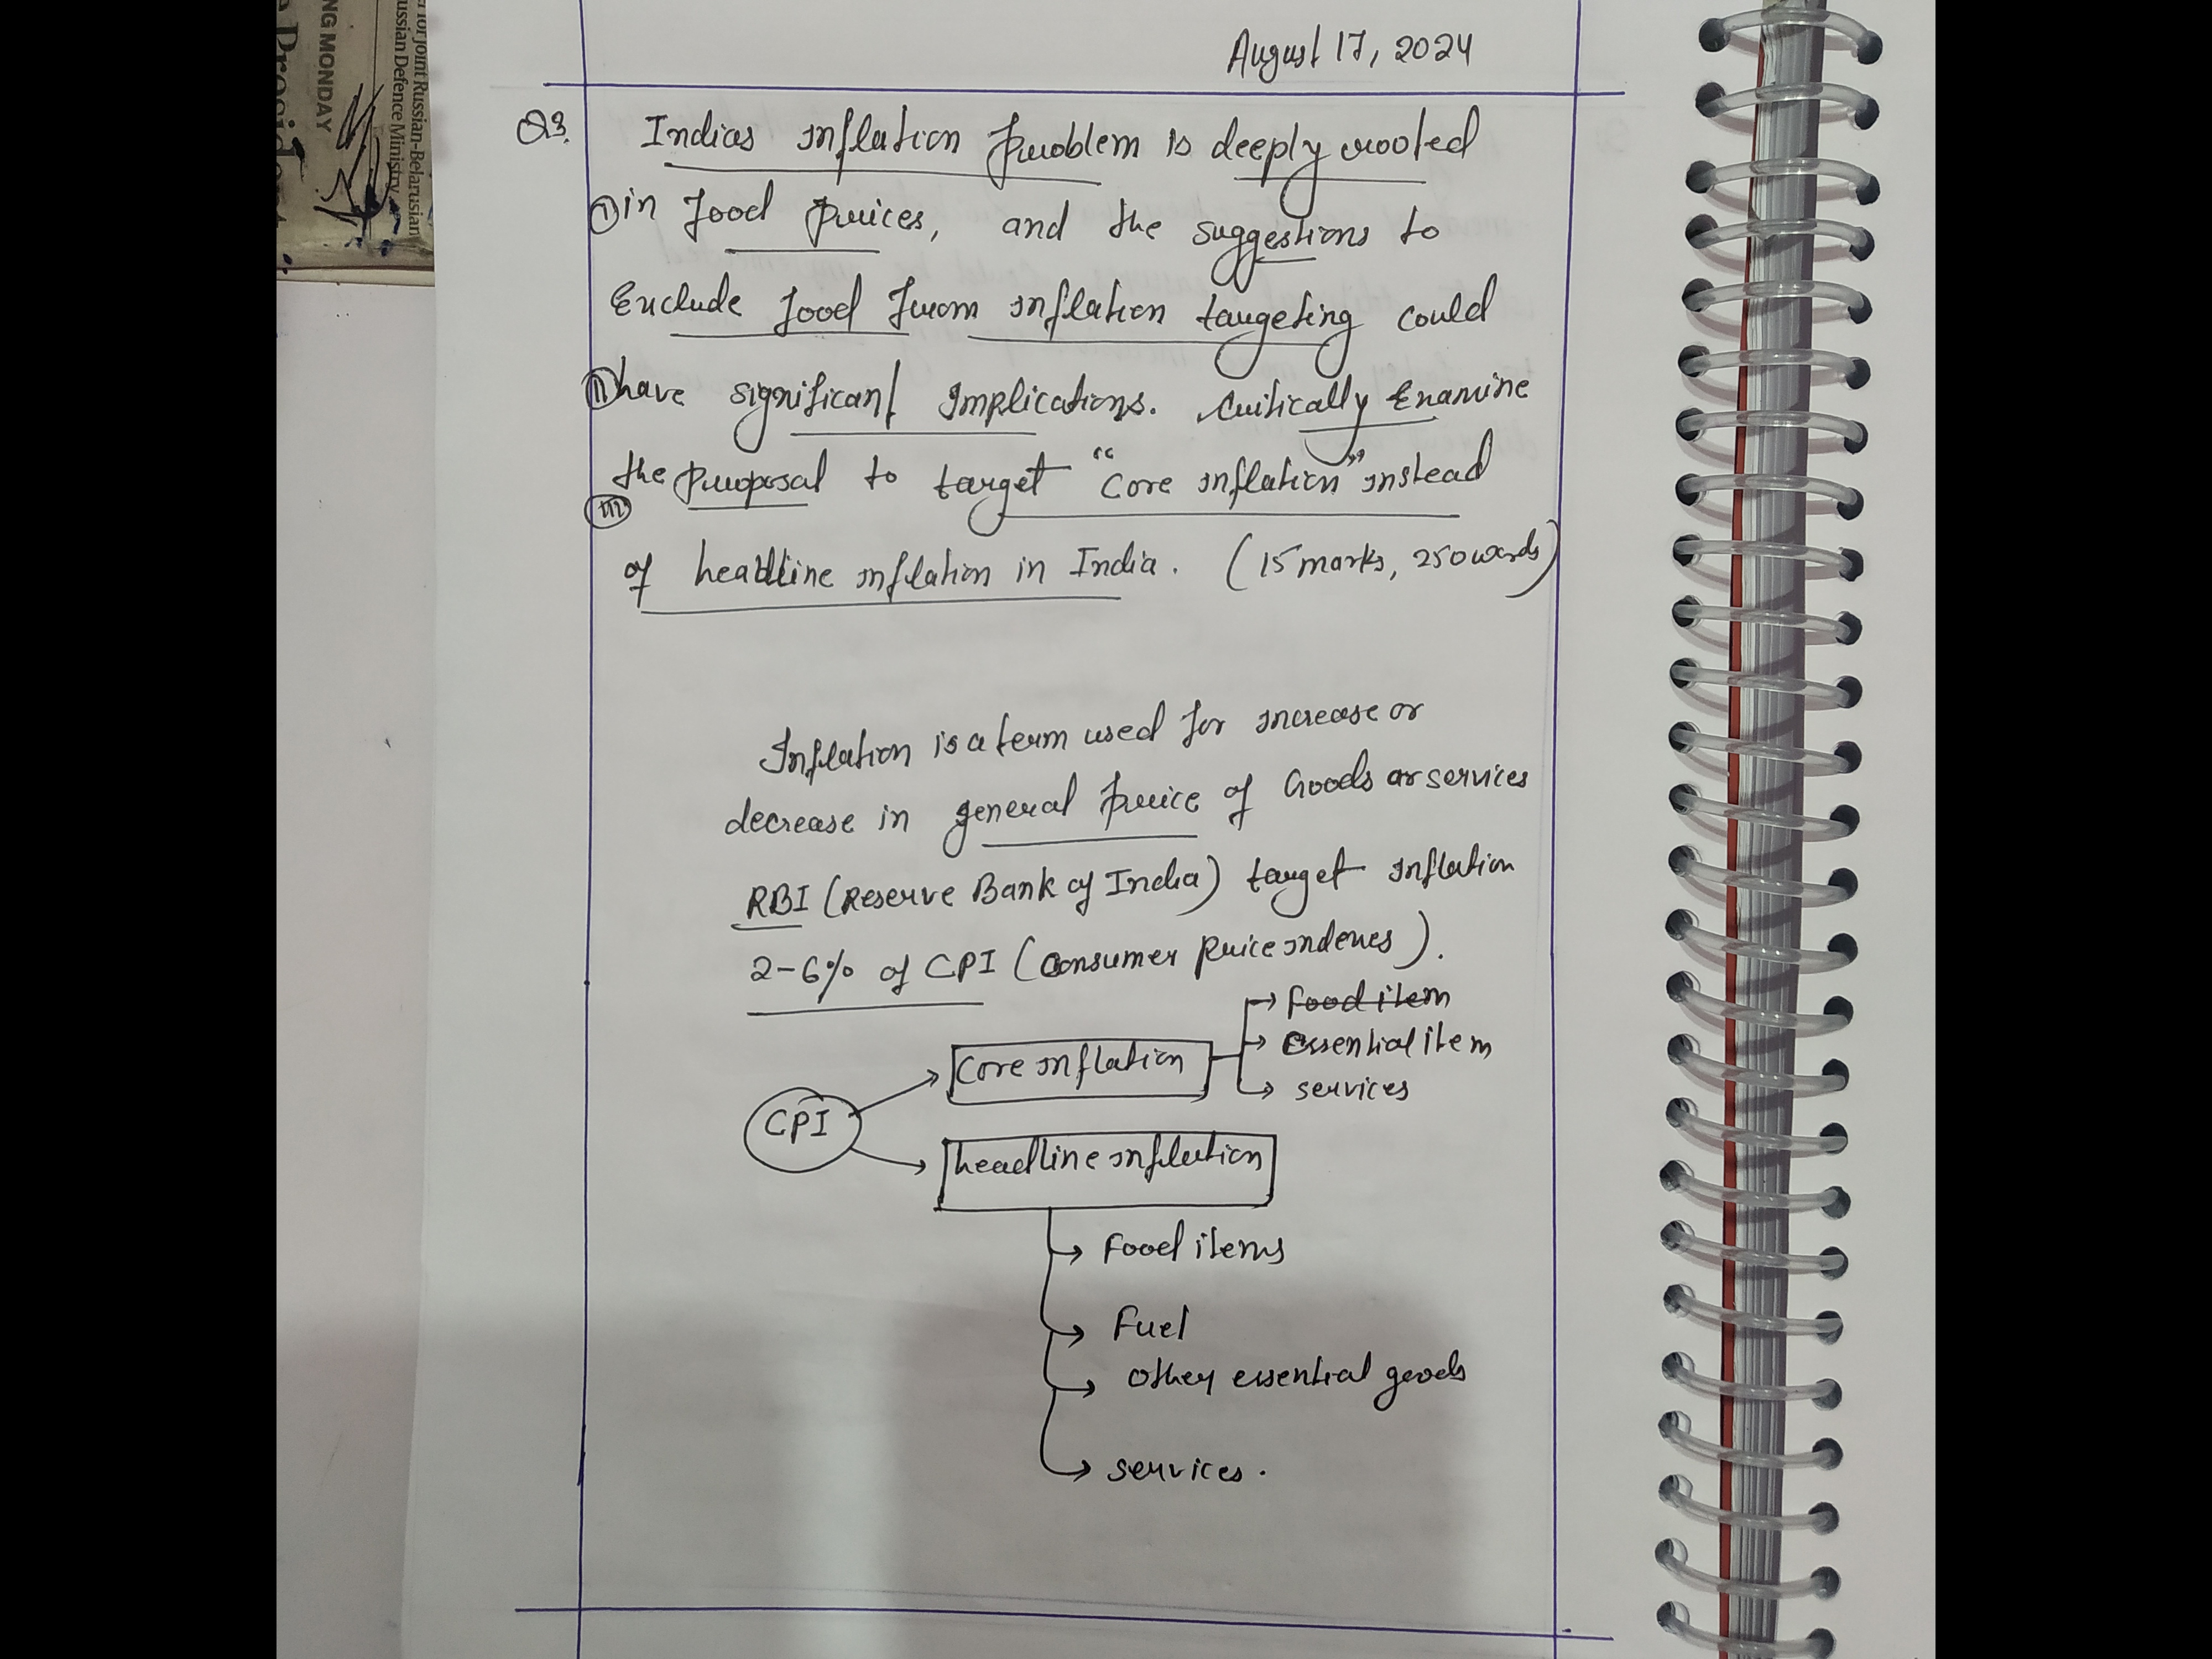 for joint Russian-Belarusian
ussian Defence Ministry
NG MONDAY
August 17, 2024
Q3. Indias inflation problem is deeply rooted
① in food prices, and the suggestions to
Exclude food from inflation targeting could
⑪ have significant implications. Critically Examine
the proposal to target "Core inflation" instead
⑪⑪
of headline inflation in India. (15 marks, 250 words)
Inflation is a term used for increase or
decrease in general price of Goods or services
RBI (Reserve Bank of India) target inflation
2-6% of CPI (Consumer price indexes).
food item
Core inflation
essential item
services
CPI
headline inflation
Food items
Fuel
other essential goods
services.